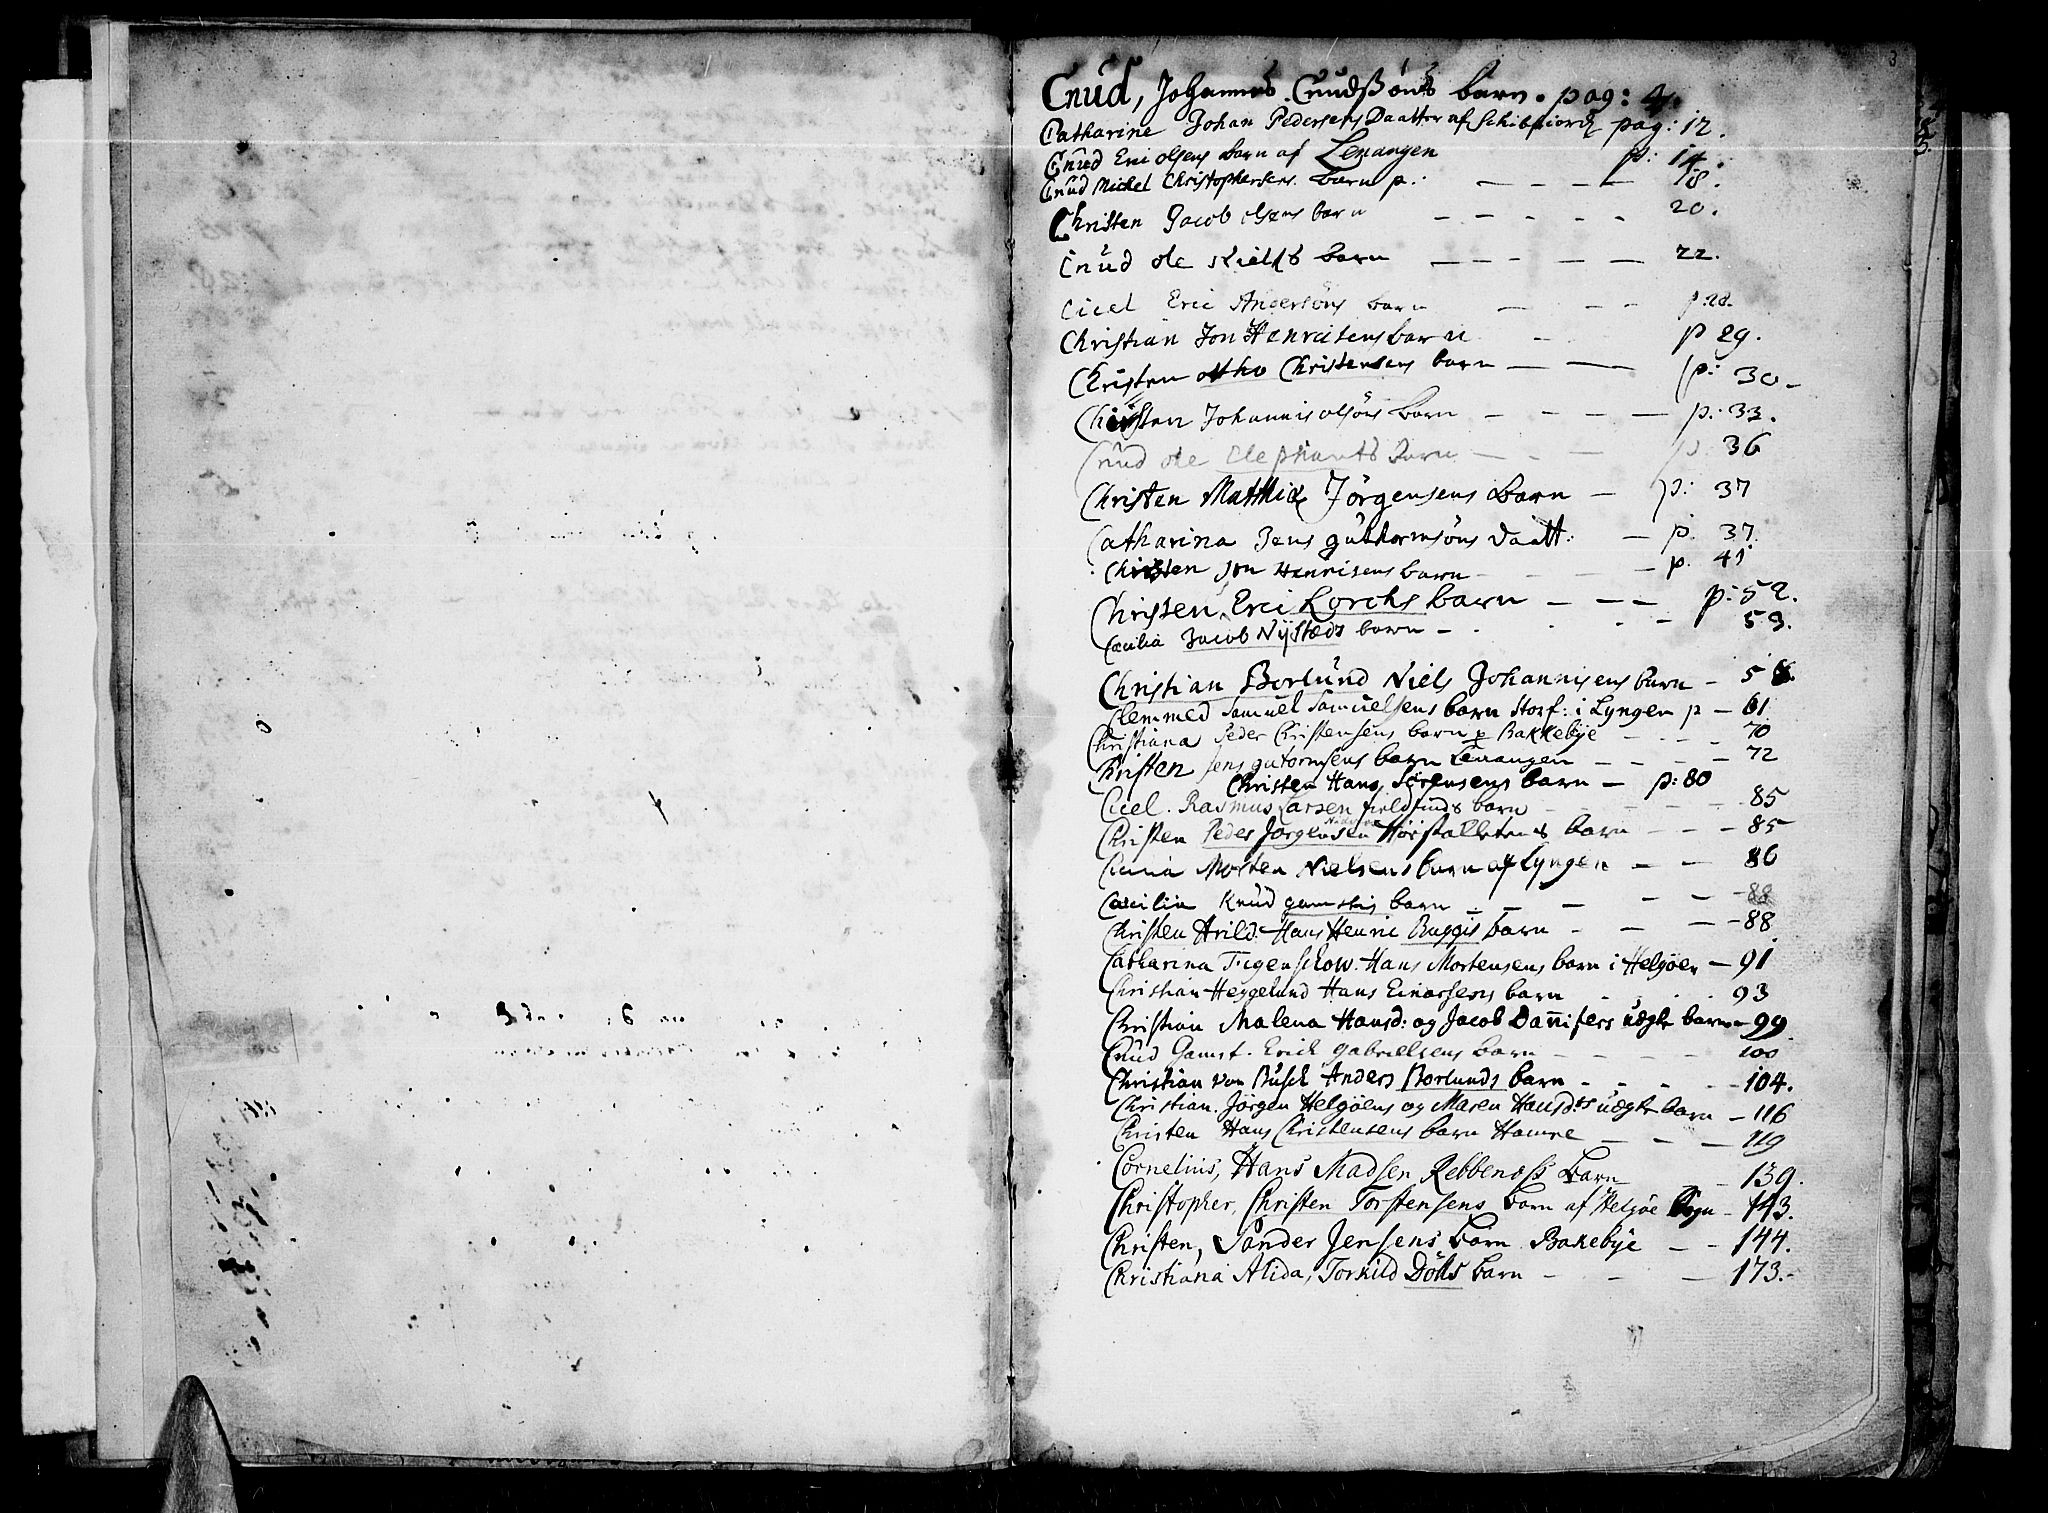 3
Cnud, Johannes Cnudsøns barn. pag: 4.
Catharine Johan Pedersens Daatter af Schibfiord pag: 12.
Cnud Eric Olsens barn af Lenangen p: 14.
Cnud Michel Christophersens barn p: — — — — 18.
Christen Jacob Olsens barn — — — — — 20.
Cnud Ole Kields barn — — — — — 22.
Cicel Eric Andersøns barn — — — p. 28.
Christian Jon Henricsens barn — p 29.
Christen Otho Christensens barn — — p: 30 —
Christen Johannis Olsøns barn — — — — p: 33.
Cnud Ole Elephants barn — — — p: 36
Christen Matthiæ Jørgensens barn — p: 37
Catharina Jens Guttormsøns Daatt: — p: 37.
Christen Jon Henricsens barn — — — p. 41
Christen Erici Lorchs barn — — — p: 52.
Cæcilia Jacob Nysteds barn — — — 53.
Christian Borlund Niels Johannisens barn — 58.
Clemmed Samuel Samuelsens barn Storf: i Lyngen p — 61
Christiana Peder Christensens barn p Bakkebye — — — 70
Christen Jens Gutormsens barn Lenangen — — — — 72
Christen Hans Sørensens barn — p: 80
Cicel. Rasmus Larsen fieldfinds barn — — — — 85
Christen Peder Jørgensen barn — — — 85
Morten Nielsens barn af Lyngen — — 86
Cæcilia Knud Gamstis barn — — — — — 88
Christen Arild. Hans Henric Ruggis barn — — — 88
Catharina Tugenschow. Hans Mortensens barn i Helgøen — 91
Christian Heggelund Hans Einersens barn — — — 93
Christian Malena Hansd: og Jacob Dannifers uægte barn — 99
Cnud Gamst. Erich Gabrielsens barn — — — — 100
Christian von Busch Anders Borlunds barn — — — — 104.
Christian. Jørgen Helgøens og Maren Hansd:rs uægte barn — 116
Christen Hans Christensens barn Hamre — — — 119
Cornelius, Hans Madsen Rebbenoss barn — 139.
Christopher, Christen Torstensens barn af Helgøe Sogn — 143.
Christen, Sander Jensens barn Bakebye — — 144.
Christiana Alida, Torkild Dølls barn — — — 173. —